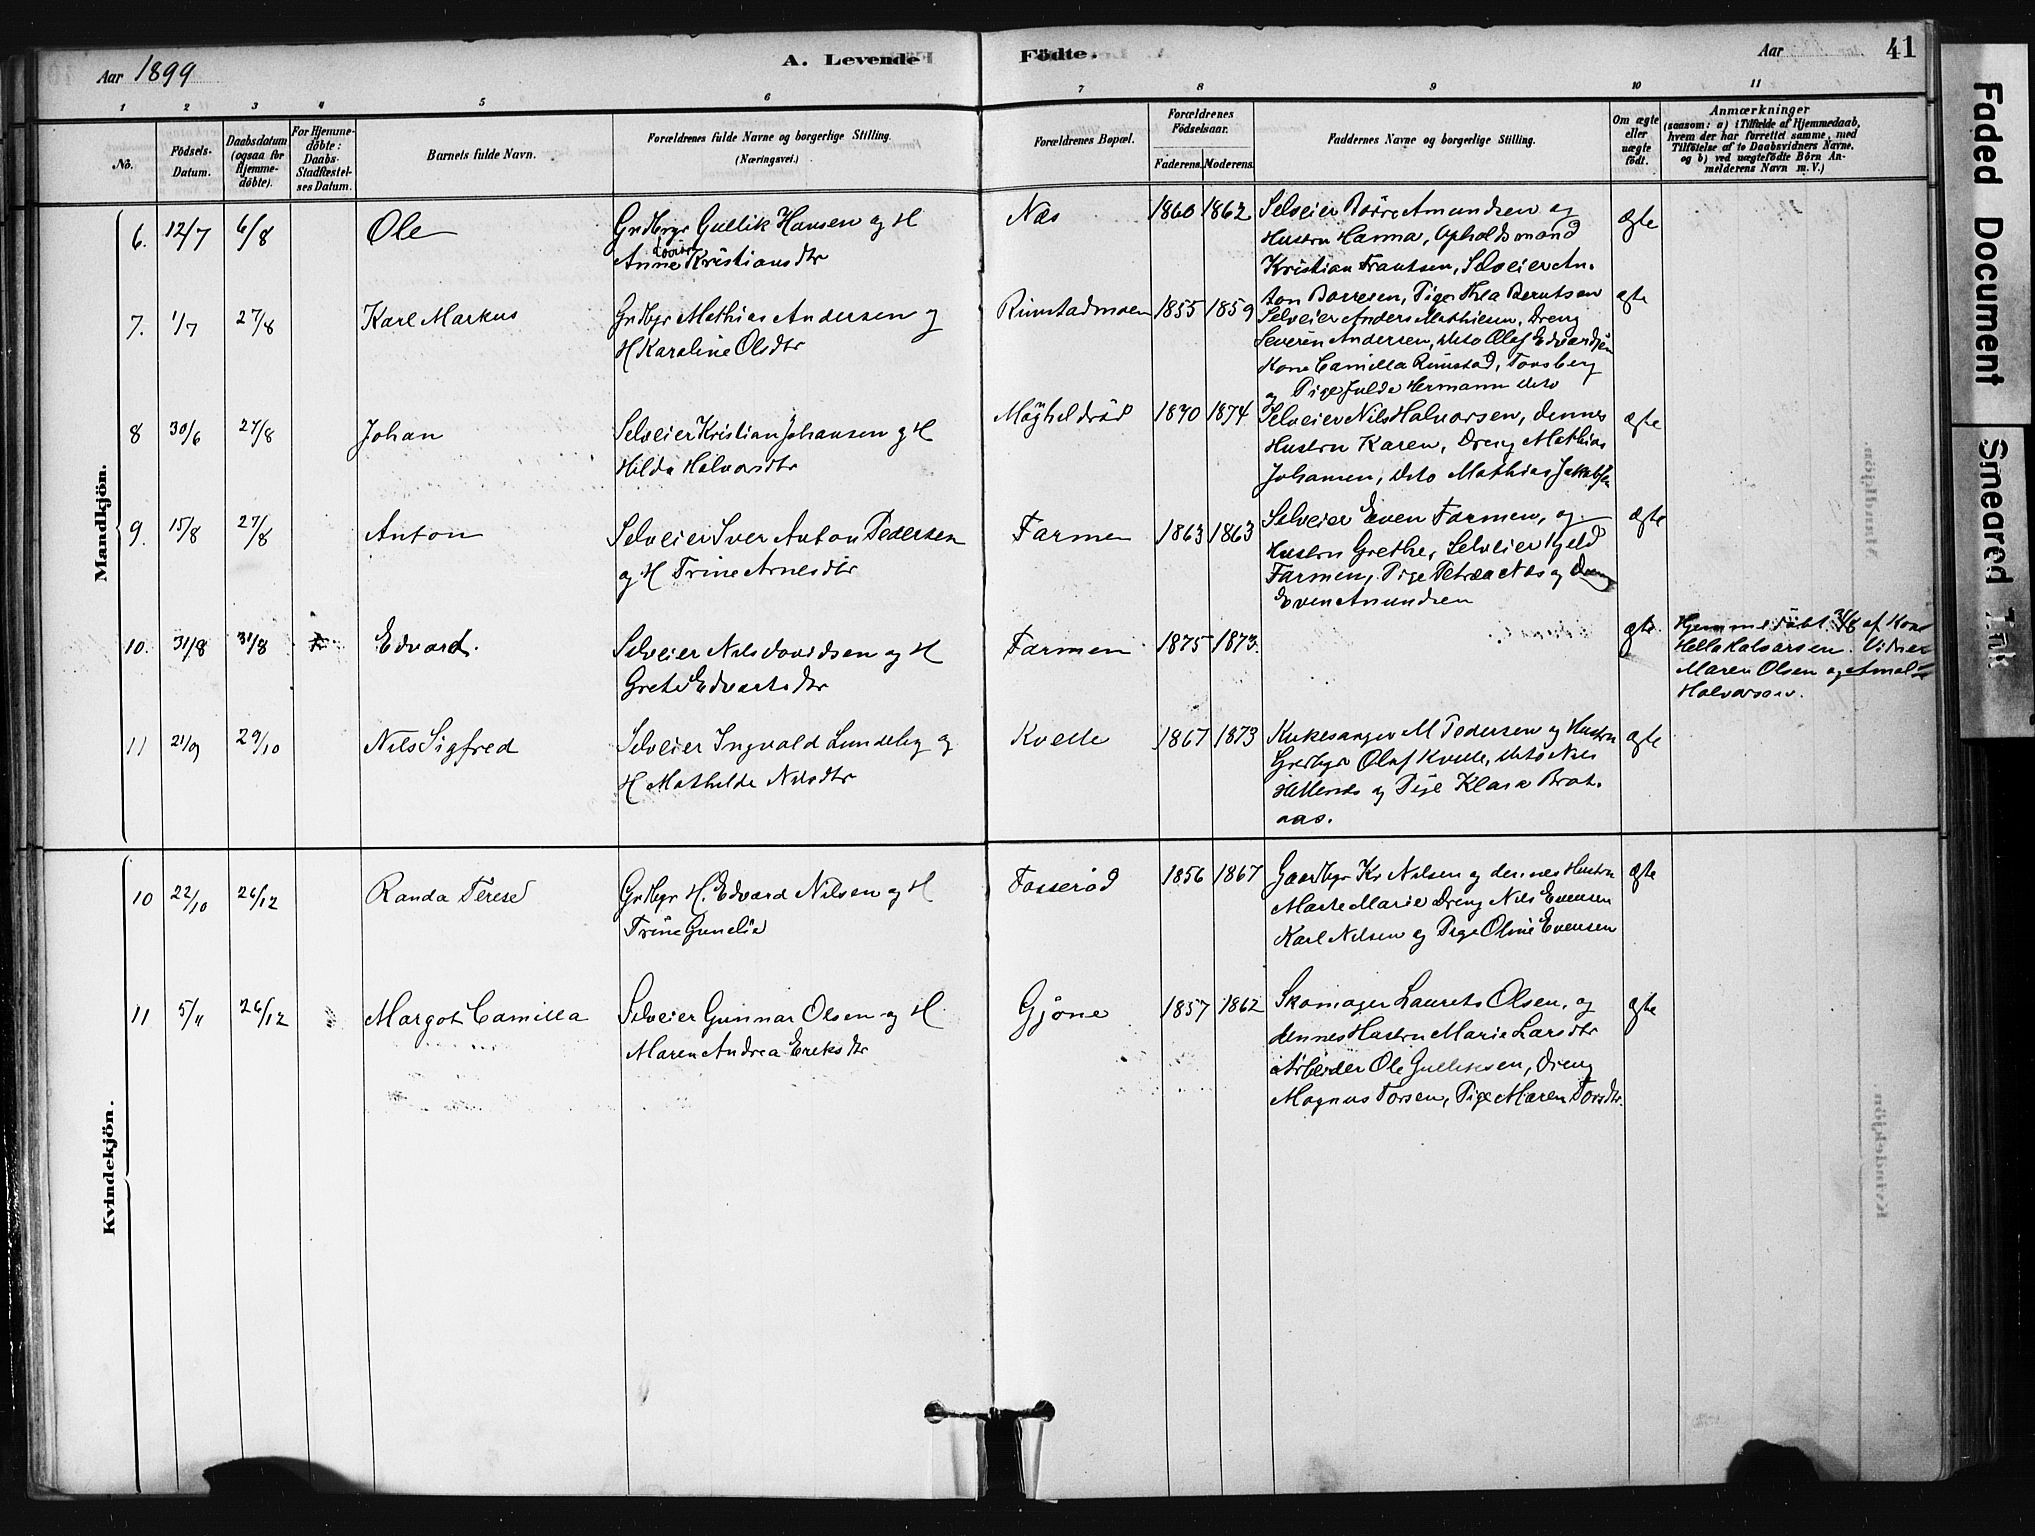 Aar 1899
A. Levende
Födte.
Aar
41
1 2 3 4 5 6 7 8 9 10 11
Nò.
Födsels-Datum.
Daabsdatum (ogsaa for Hjemme-döbte).
For Hjemme-döbte: Daabs-Stadfæstel-ses Datum.
Barnets fulde Navn.
Forældrenes fulde Navne og borgerlige Stilling. (Næringsvei.)
Forældrenes Bopæl.
Forældrenes Födselsaar.
Faderens. Moderens.
Faddernes Navne og borgerlige Stilling.
Om ægte eller uægte födt.
Anmærkninger
(saasom: a) i Tilfælde af Hjemmedaab,
hvem der har forrettet samme, med
Tilföielse af to Daabsvidners Navne.
og b) ved uægtefödte Börn An-
melderens Navn m. V.)
Mandkjön.
6. 12/7 6/8 Ole
Grdbgr Gullik Hansen og H
Anne Lovise Kristiansdtr
Næs 1860 1862
Selveier Börre Amundsen og
Hustru Hanna, Opholdsmand
Kristian Frantsen, Selveier An.
ton Borresen, Pige Thea Berntsen
ægte
7. 1/7 27/8 Karl Markus
Grdbgr Mathias Andersen og
H Karoline Olsdtr
Rimstadmoen 1855 1859
Selveier Anders Mathisen, Dreng
Severin Andersen, dito Olaf Edvardsen
Kone Camilla Rimstad, Tønsberg
og Pige Julda Hermann dito
ægte
8 30/6 27/8 Johan
Selveier Kristian Johansen og H
Hilda Halvorsdtr
Mögheldröd 1870 1874
Selveier Nils Halvorsen, dennes
Hustru Karen, Dreng Mathias
Johansen, dito Mathias Jakobsen
ægte
9. 15/8 27/8 Anton
Selveier Iver Anton Pedersen
og H Trine Arnesdtr
Farmen 1863 1863
Selveier Even Farmen, og
Hustru Grethe, Selveier Kjeld
Farmen, Pige Petrea Næs og Dreng
Even Amundsen
ægte
10. 31/8 31/8 Edvard.
Selveier Nils Davidsen og H
Grete Edvartsdtr
Farmen 1875 1873.
ægte
Hjemmedöbt 31/8 af Kone
Helle Halvorsen. Vidner
Maren Olsen og Amalie
Halvorsen.
11 21/9 29/10 Nils Sigfred
Selveier Ingvald Lundeby og
H Mathilde Nilsdtr
Kvelle 1867 1873
Kirkesanger M Pedersen og Hustru
Grdbgr Olaf Kvelle, dito Nils
og Pige Klara Brat.
aas.
ægte
Kvindekjön.
10 22/10 26/12 Randa Terese
Grdbgr H. Edvard Nilsen og H
Trine Gunelia
Fosserød 1856 1867
Gaardbgr Kr Nilsen og dennes Hustru
Marte Marie Dreng Nils Evensen
Karl Nilsen og Pige Oline Evensen
ægte
11 5/11 26/12 Margot Camilla
Selveier Gunnar Olsen og H
Maren Andrea Eriksdtr
Gjöne 1857 1862
Skomager Laurets Olsen, og
dennes Hustru Marie Larsdtr
Arbeider Ole Gulliksen, Dreng
Magnus Torsen, Pige Maren Torsdtr.
ægte
Faded Document
Smeared Ink